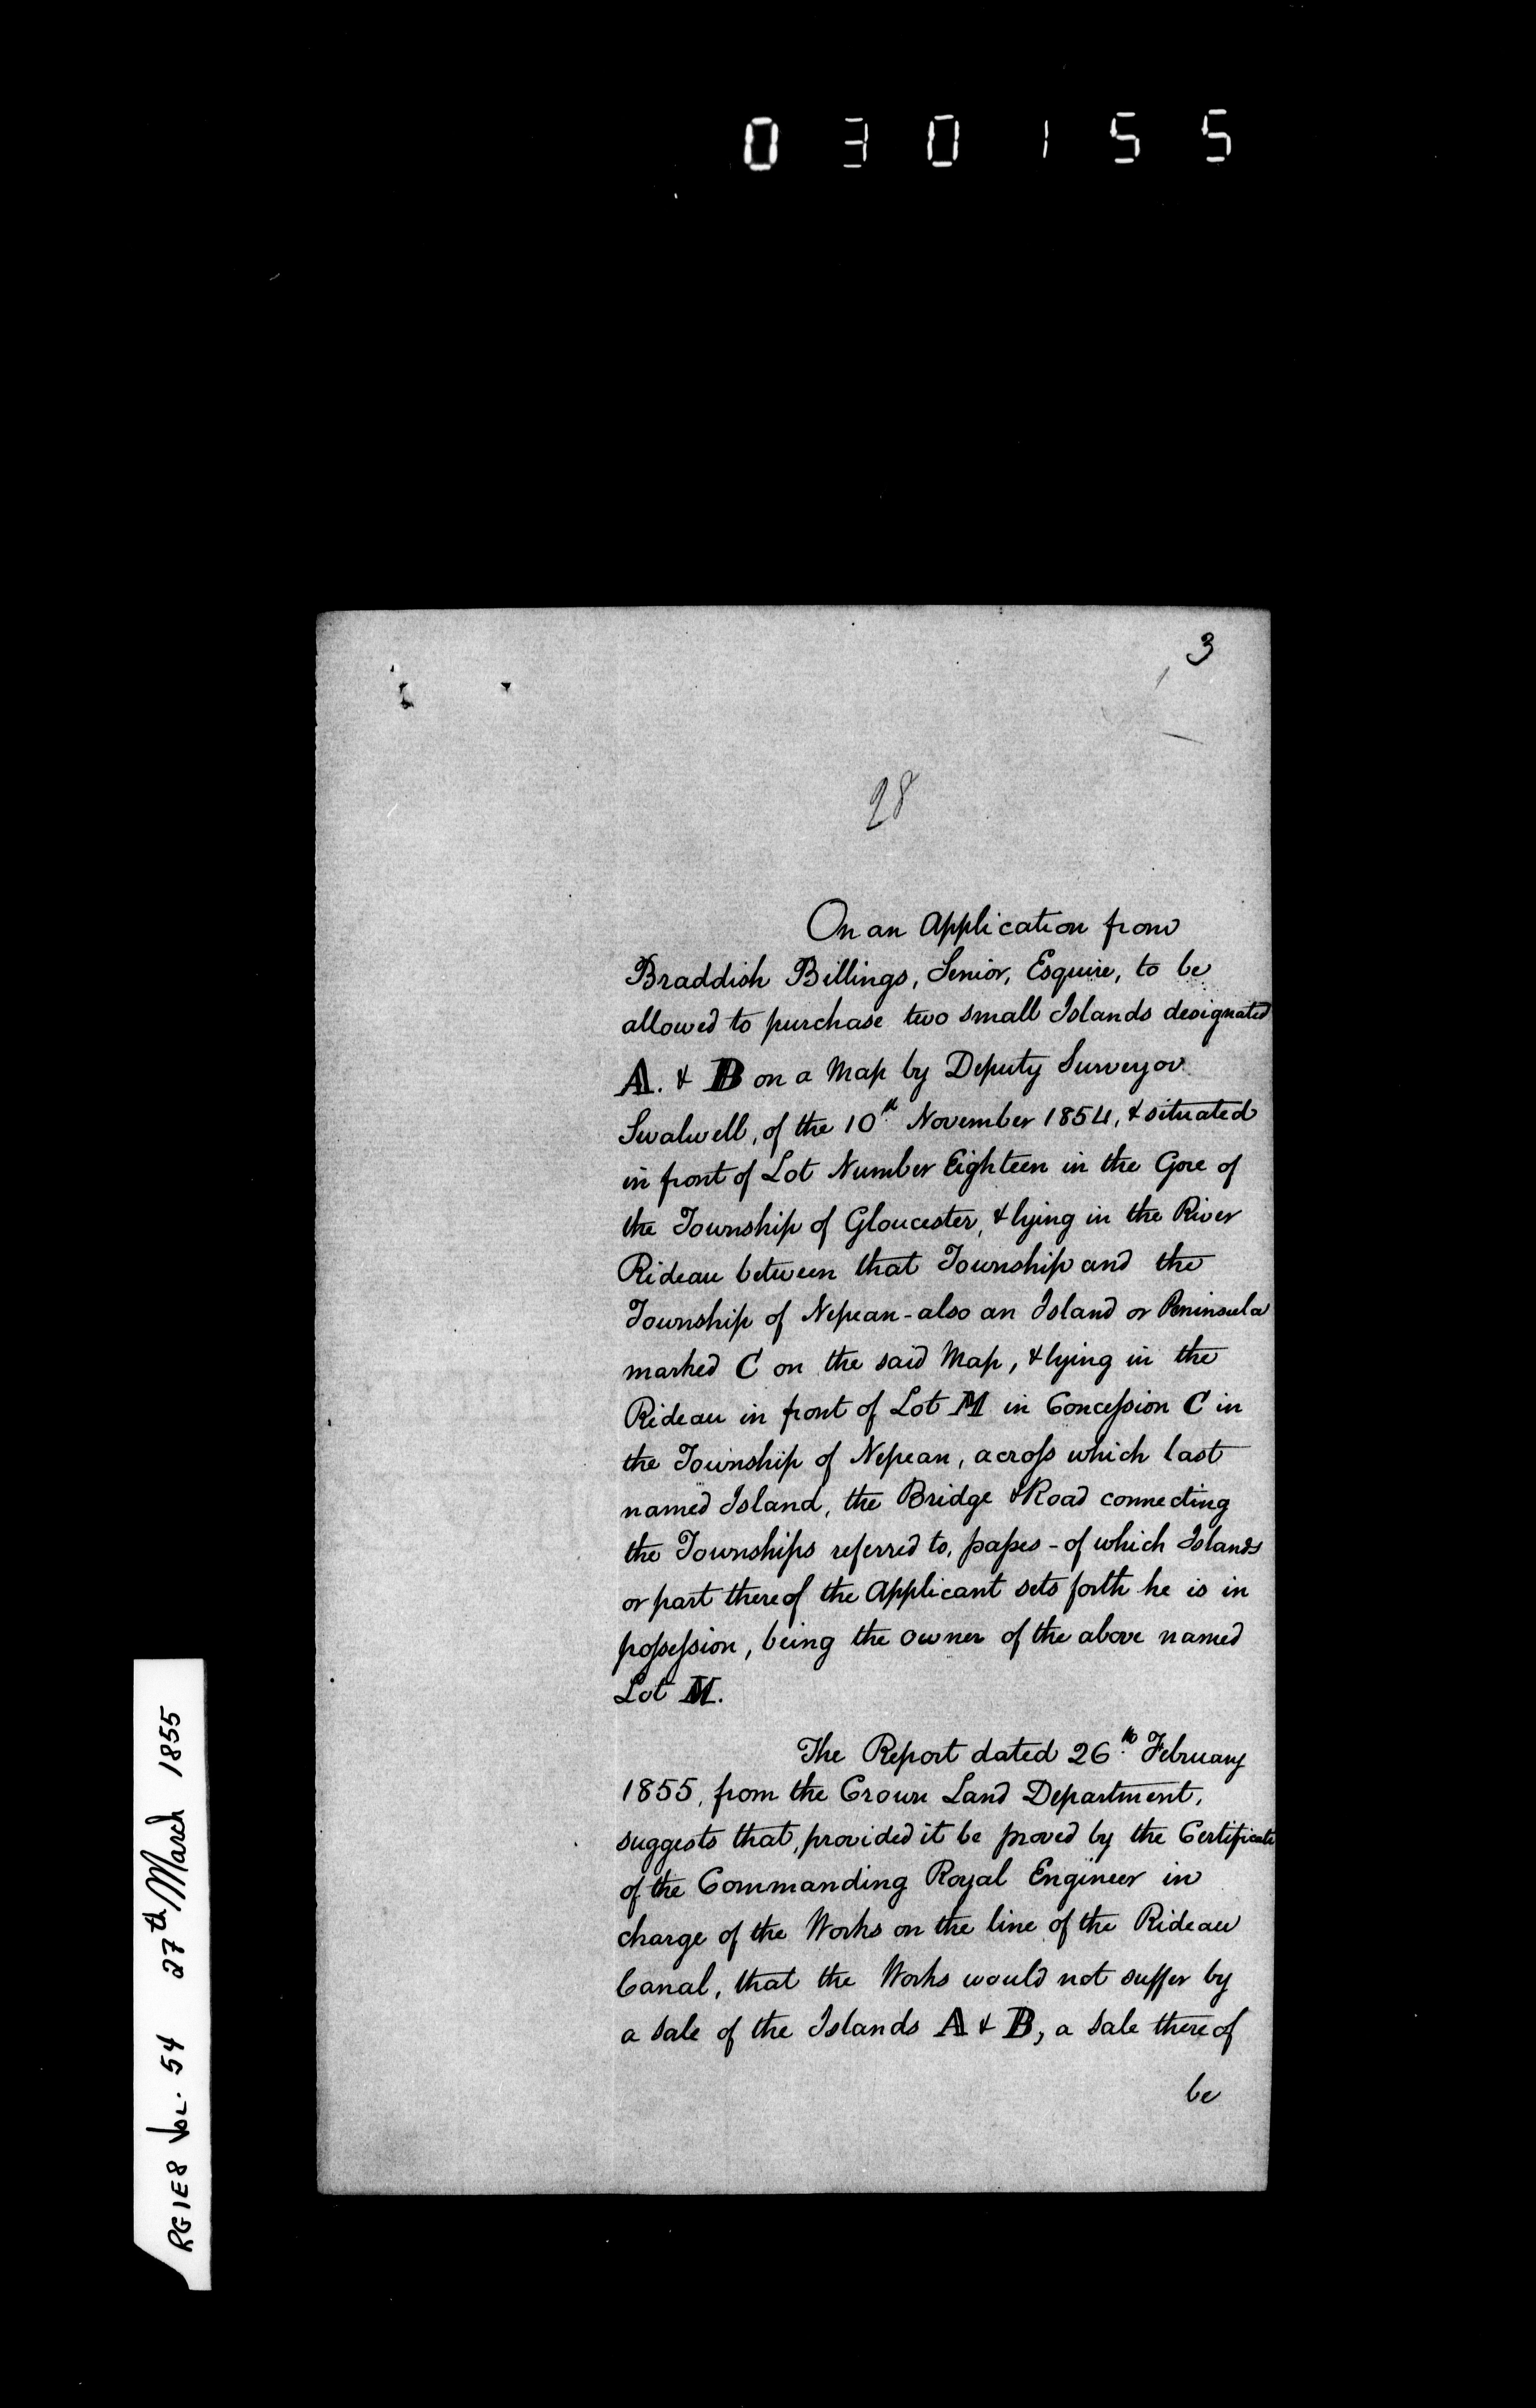 030155
3
28
On an Application from
Braddish Billings, Senior, Esquire, to be
allowed to purchase two small Islands designated
A. & B on a Map by Deputy Surveyor
Swalwell, of the 10th November 1854, & situated
in front of Lot Number Eighteen in the Gore of
the Township of Gloucester, & lying in the River
Rideau between that Township and the
Township of Nepean - also an Island or Peninsula
marked C on the said Map, & lying in the
Rideau in front of Lot M in Concession C in
the Township of Nepean, across which last
named Island, the Bridge & Road connecting
the Townships referred to, passes - of which Islands
or part thereof the Applicant sets forth he is in
possession, being the owner of the above named
Lot M.
The Report dated 26th February
1855, from the Crown Land Department,
suggests that, provided it be proved by the Certificate
of the Commanding Royal Engineer in
charge of the Works on the line of the Rideau
Canal, that the Works would not suffer by
a sale of the Islands A & B, a sale thereof
be
RG1E8 Vol. 54 27th March 1855